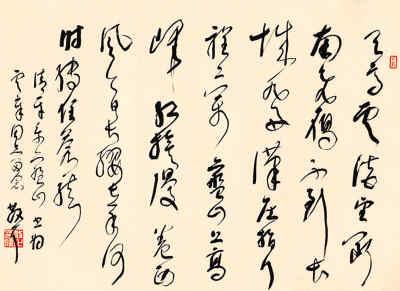 天高雲淡望斷
南飛雁不到長
城非好漢屈指行
程二萬六盤山上高
峰紅旗漫卷西
風今日長纓在手何
時縛住蒼龍
清平樂六盤山 書為
同志留念